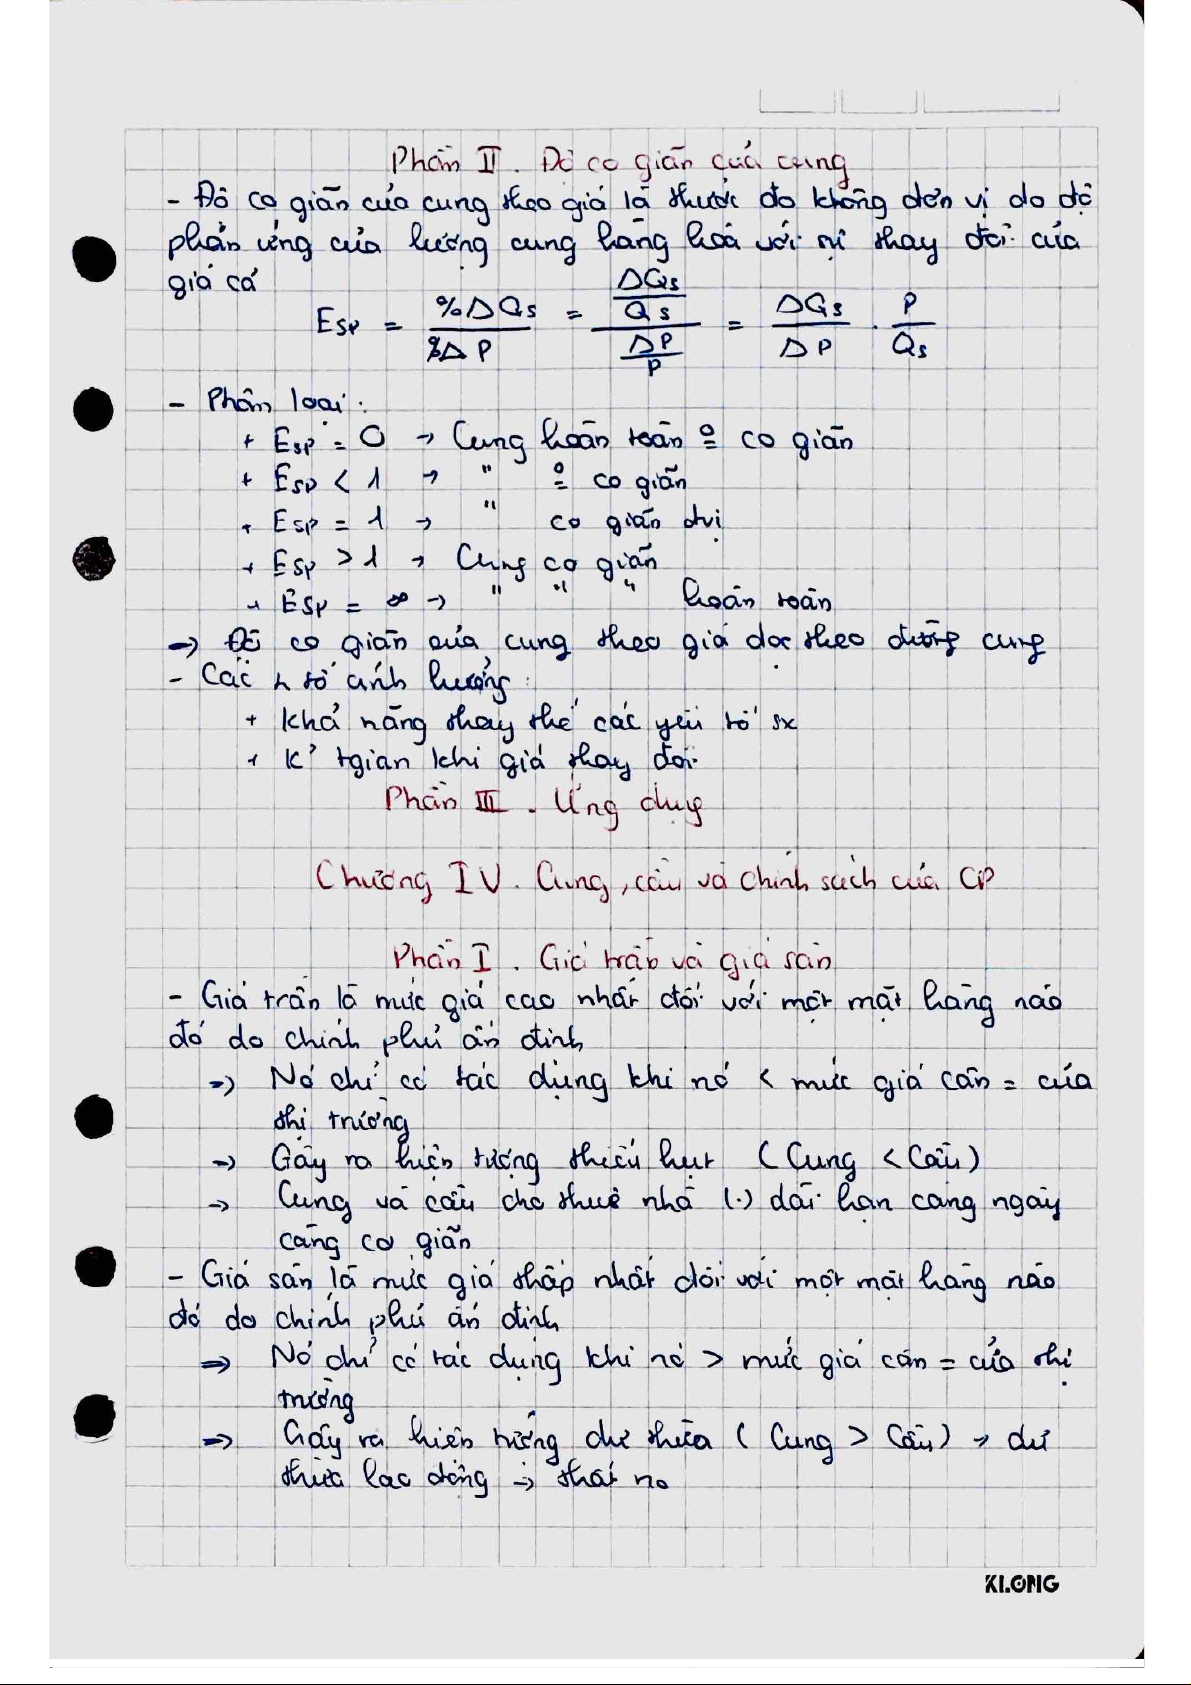 Phần II. Độ co giãn của cung
- Độ co giãn của cung theo giá là thước đo không đơn vị đo độ
phản ứng của lượng cung hàng hoá với sự thay đổi của
giá cả
E_SP = %ΔQs / %ΔP = (ΔQs/Qs) / (ΔP/P) = ΔQs/ΔP . P/Qs
- Phân loại:
+ E_SP = 0 → Cung hoàn toàn º= co giãn
+ E_SP < 1 → " º= co giãn
+ E_SP = 1 → " co giãn đvị
+ E_SP > 1 → Cung co giãn
+ E_SP = ∞ → " " " hoàn toàn
=> Độ co giãn của cung theo giá dọc theo đường cung
- Các n tố ảnh hưởng:
+ Khả năng thay thế các yếu tố sx
+ K² tgian khi giá thay đổi
Phần III. Ứng dụng
Chương IV. Cung, cầu và chính sách của CP
Phần I. Giá trần và giá sàn
- Giá trần là mức giá cao nhất đối với một mặt hàng nào
đó do chính phủ ấn định
=> Nó chỉ có tác dụng khi nó < mức giá cân = của
thị trường
→ Gây ra hiện tượng thiếu hụt (Cung < Cầu)
→ Cung và cầu cho thuê nhà (.) dài hạn càng ngày
càng co giãn
- Giá sàn là mức giá thấp nhất đối với một mặt hàng nào
đó do chính phủ ấn định
=> Nó chỉ có tác dụng khi nó > mức giá cân = của thị
trường
=> Gây ra hiện tượng dư thừa (Cung > Cầu) → dư
thừa lao động → thất no
KLONG